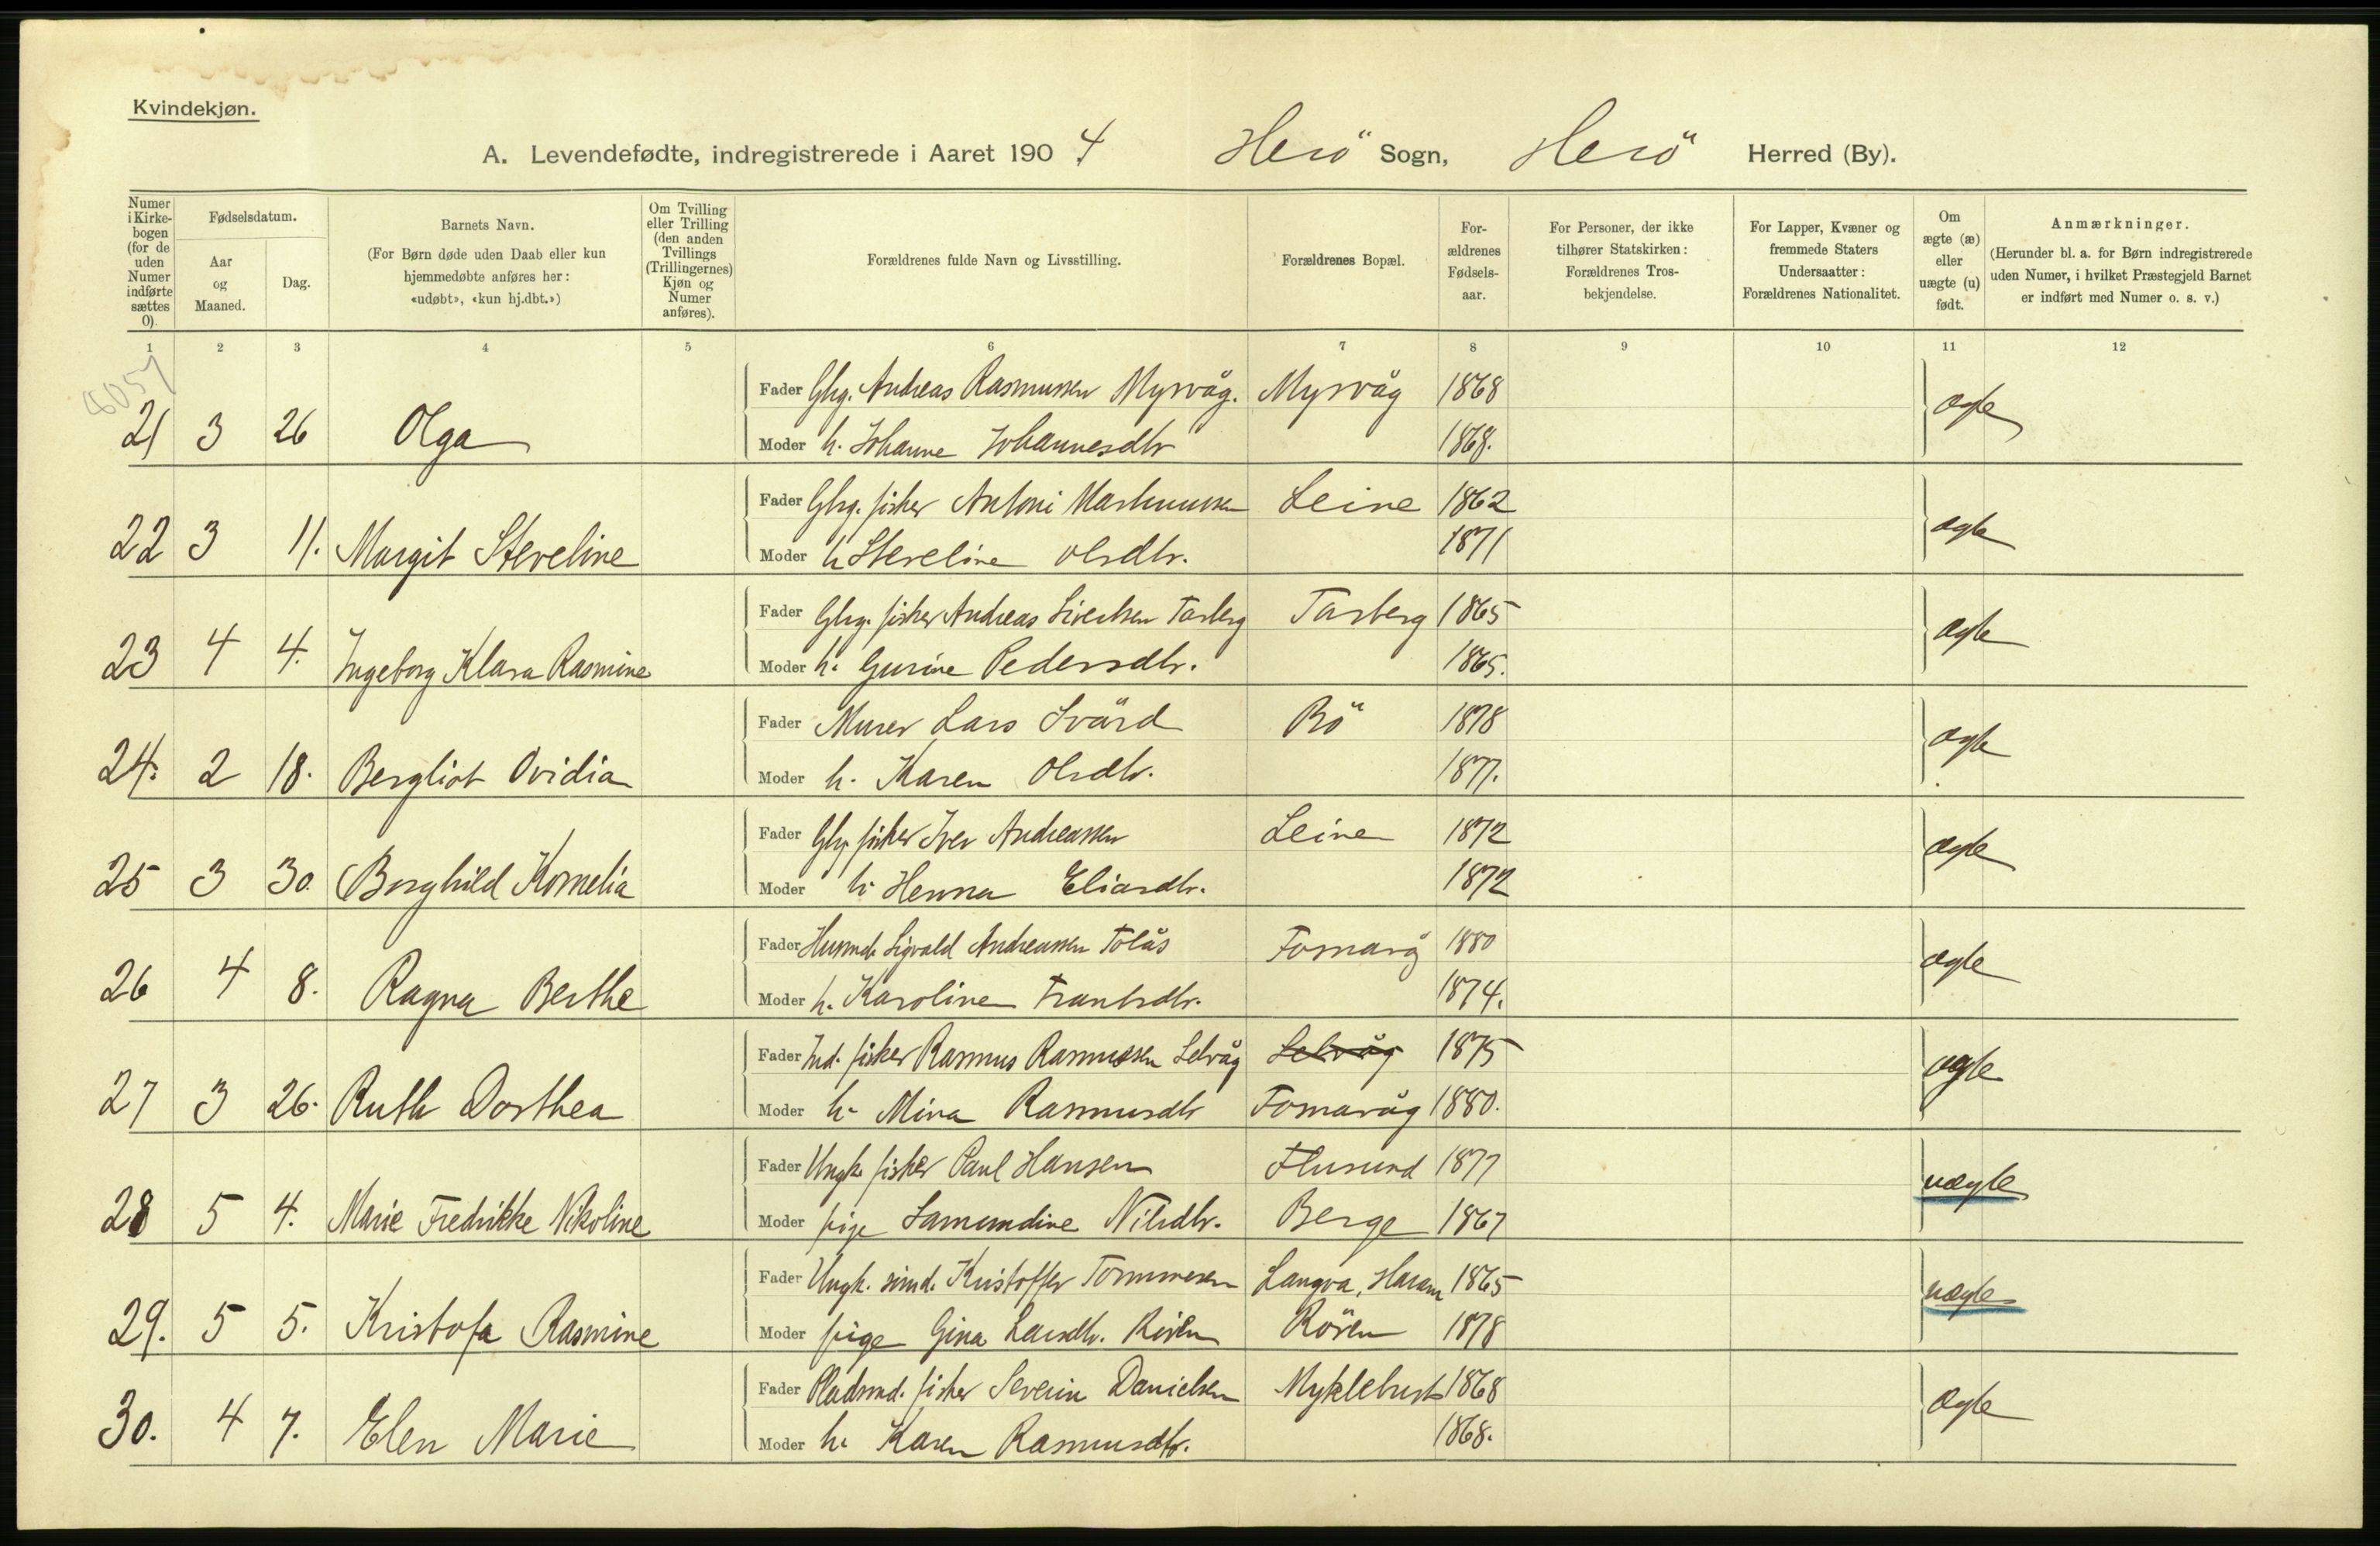 Kvindekjøn.
A. Levendefødte, indregistrerede i Aaret 1904 Herö Sogn, Herö Herred (By).
Numer i Kirkebogen (for de uden Numer indførte sættes 0).
Fødselsdatum.
Aar og Maaned.
Dag.
Barnets Navn.
(For Børn døde uden Daab eller kun hjemmedøbte anføres her: «udøbt», «kun hj.dbt.»)
Om Tvilling eller Trilling (den anden Tvillings (Trillingernes) Kjøn og Numer anføres).
Forældrenes fulde Navn og Livsstilling.
Forældrenes Bopæl.
Forældrenes Fødselsaar.
For Personer, der ikke tilhører Statskirken: Forældrenes Trosbekjendelse.
For Lapper, Kvæner og fremmede Staters Undersaatter: Forældrenes Nationalitet.
Om ægte (æ) eller uægte (u) født.
Anmærkninger.
(Herunder bl. a. for Børn indregistrerede uden Numer, i hvilket Præstegjeld Barnet er indført med Numer o. s. v.)
1 2 3 4 5 6 7 8 9 10 11 12
8057
Fader Gbrg. Andreas Rasmussen Myrvåg. Myrvåg 1868
21 3 26 Olga Moder h. Johanne Johannesdtr 1868. ægte
Fader Gbrg. fisker Antoni Martinussen Leine 1862
22 3 11. Margit Steveline Moder h Steveline Olsdtr. 1871 ægte
Fader Gbrg. fisker Andreas Sivertsen Tarberg Tarberg 1865
23 4 4. Ingeborg Klara Rasmine Moder h. Gurine Pedersdtr. 1865. ægte
Fader Murer Lars Svärd Bö 1878
24. 2 18. Bergliot Ovidia Moder h. Karen Olsdtr. 1877. ægte
Fader Gbrg fisker Iver Andreassen Leine 1872
25 3 30. Borghild Kornelia Moder h. Henna Eliasdtr. 1872 ægte
Fader Husmd. Sigvald Andreassen Tolås Fosnavåg 1880
26 4 8. Ragna Berthe Moder h. Karoline Frantsdtr. 1874. ægte
Fader Ind. fisker Rasmus Rasmussen Selvåg Selvåg 1875
27 3 26. Ruth Dorthea Moder h. Mina Rasmusdtr Fosnavåg 1880. ægte
Fader Ungk. fisker Paul Hansen Flusund 1877
28 5 4. Marie Fredrikke Nikoline Moder pige Samundine Nilsdtr. Berge 1867 uægte
Fader Ungk. smd. Kristoffer Tommesen Langva, Haram 1865
29. 5 5. Kristofa Rasmine Moder pige Gina Larsdtr. Rören Rören 1878 uægte
Fader Pladsmd. fisker Severin Danielsen Myklebust 1868
30. 4 7. Elen Marie Moder h. Karen Rasmusdtr. 1868. ægte